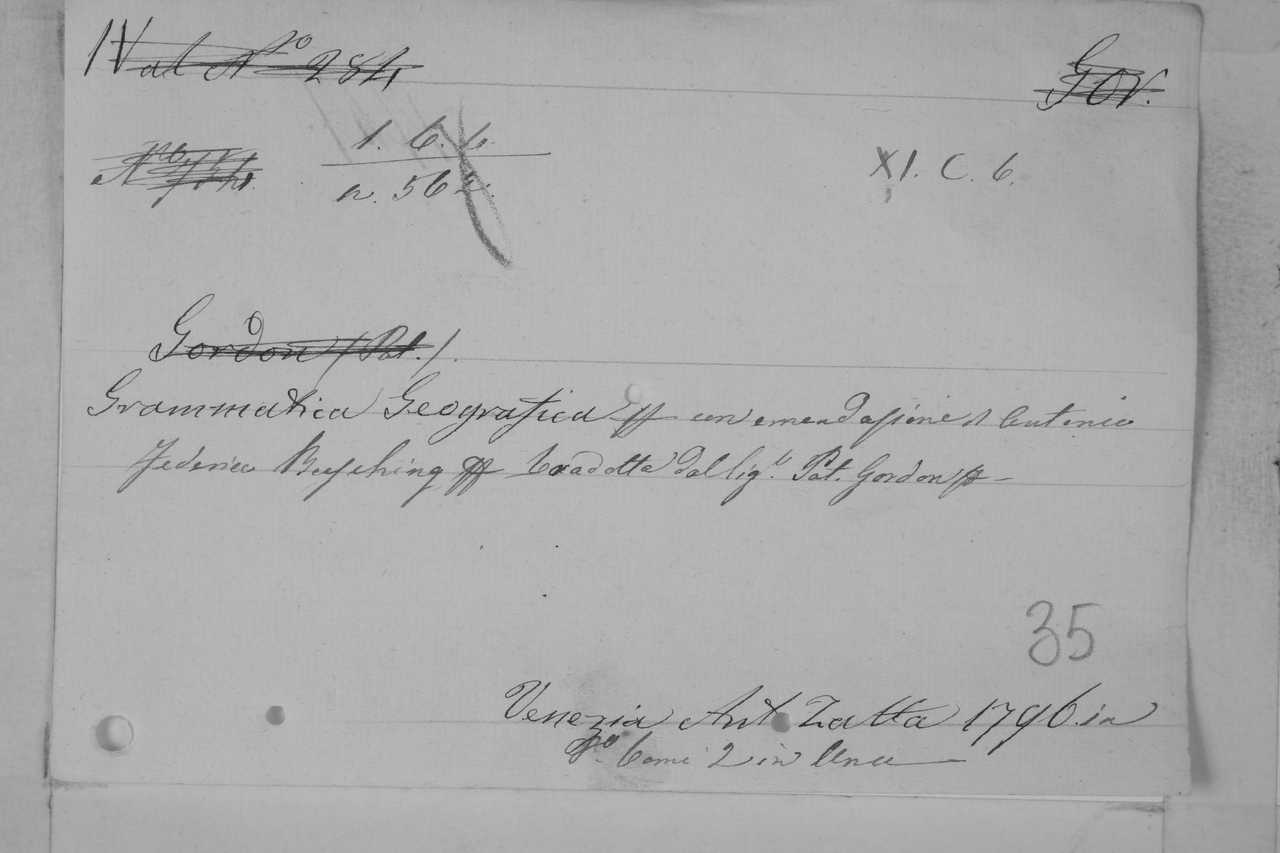 IV al N.o 284
Gor.
N.ro
1. 6. 6.
n. 56
XI. C. 6.
Gordon / Pat. /.
Grammatica Geografica con emendasioni d' Antonio
Federico Busching tradotta dal Sig.r Pat. Gordon
35
Venezia Ant. Zatta 1796. in
8.o tomi 2 in Uno